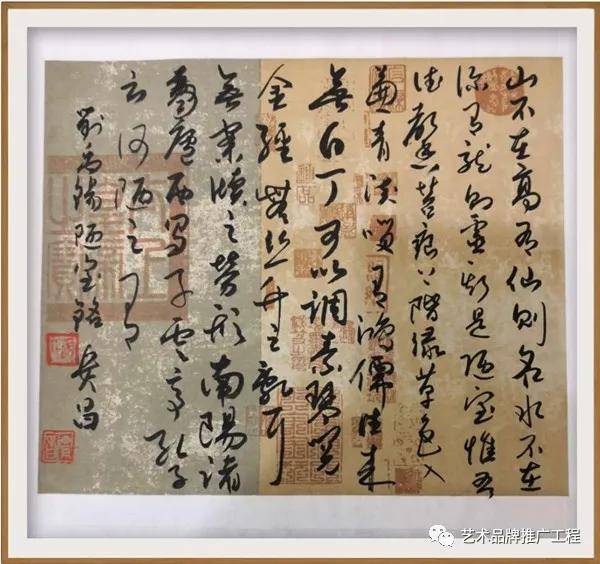 山不在高有仙則名水不在
深有龍則靈斯是陋室惟吾
德馨苔痕上階綠草色入
簾青談笑有鴻儒往來
無白丁可以調素琴閱
金經無絲竹之亂耳
無案牘之勞形南陽諸
葛廬西蜀子雲亭孔子
云何陋之有
劉禹錫陋室銘 吳昌
艺术品牌推广工程